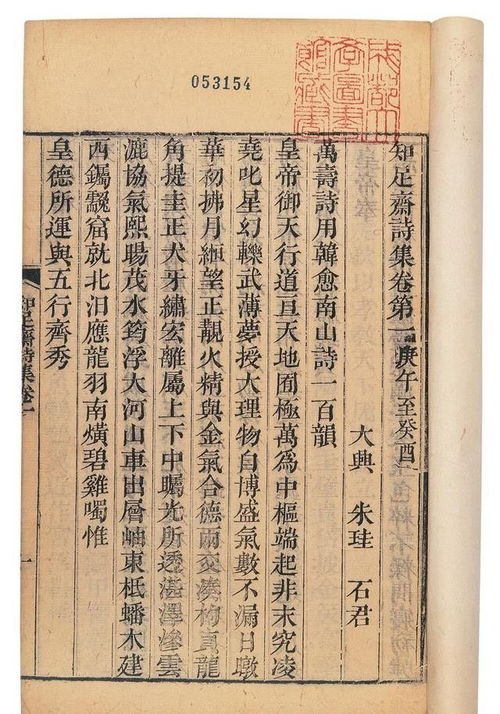 053154
成都大
學圖書
館藏書
知足齋詩集卷第一 庚午至癸酉上
大興 朱珪 石君
萬壽詩用韓愈南山詩一百韻
皇帝御天行道亘天地囿極萬為中樞端起非末究凌
堯叱星幻轢武薄夢授大理物自博盛氣數不漏日暾
華初拂月緪望正覯火精與金氣合德雨交湊杓直龍
角提圭正犬牙繡宏離屬上下中矚光所透湛澤滲雲
漉協氣熙暘茂水筠浮大河山車出層岫東柢蟠木建
西鐲覶窟就北汨應龍羽南熿碧雞噣惟
皇德所運與五行齊秀
知足齋詩集卷一
一